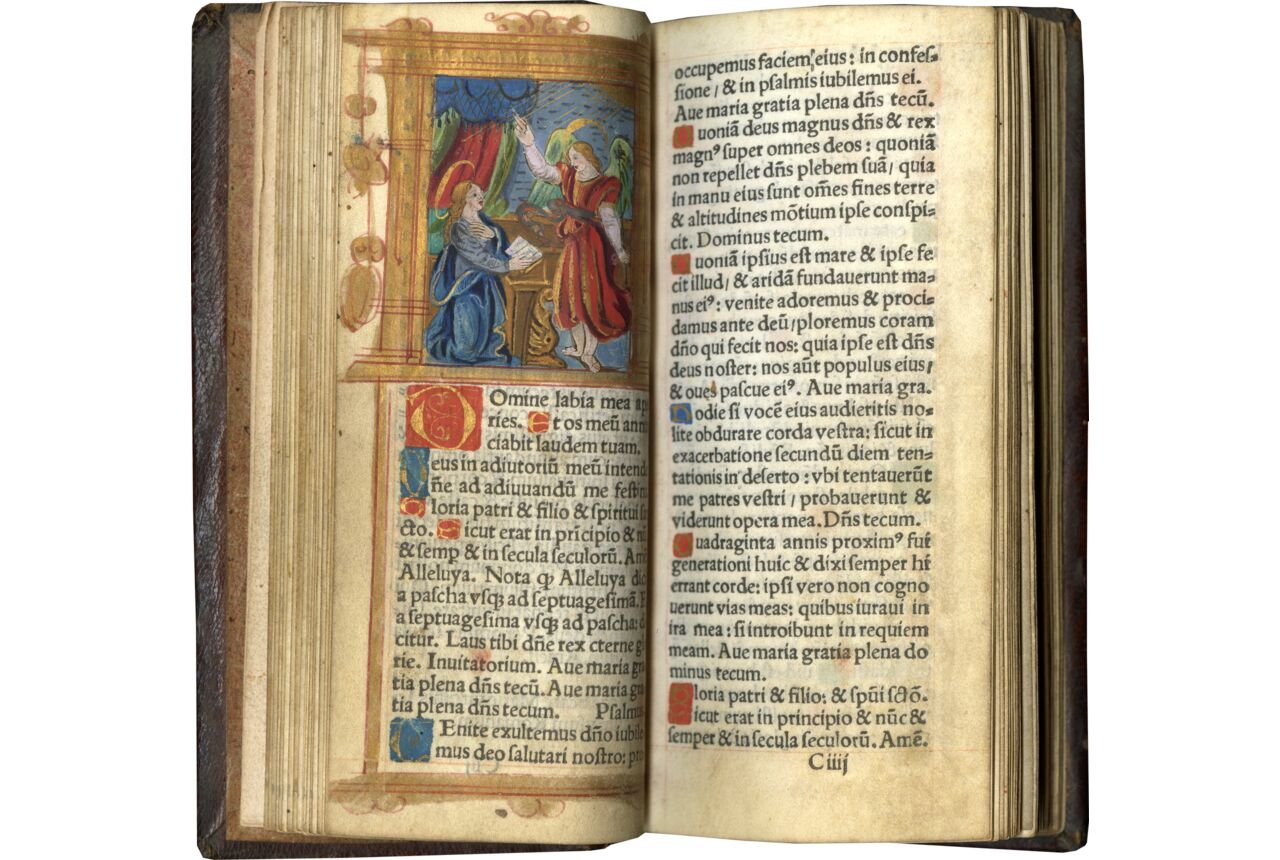 Omine labia mea a
ries. Et os meũ ann
ciabit laudem tuam.
Deus in adiutoriũ meũ intend
ñe ad adiuuandũ me festin
Gloria patri & filio & spiritui
cto. Sicut erat in pricipio & n
& semp & in secula seculorũ. Am
Alleluya. Nota ꝙ Alleluya dic
a pascha vsqꝫ ad septuagesimã.
a septuagesima vsqꝫ ad pascha:
citur. Laus tibi dñe rex eterne g
rie. Inuitatorium. Aue maria gra
tia plena dñs tecũ. Aue maria gra
tia plena dñs tecum. Psalmus.
VEnite exultemus dño iubile
mus deo salutari nostro: pre
occupemus faciem eius: in confes⸗
sione / & in psalmis iubilemus ei.
Aue maria gratia plena dñs tecũ.
Quoniã deus magnus dñs & rex
magnꝰ super omnes deos: quoniã
non repellet dñs plebem suã / quia
in manu eius sunt om̃es fines terre
& altitudines mõtium ipse conspi⸗
cit. Dominus tecum.
Quoniã ipsius est mare & ipse fe
cit illud / & aridã fundauerunt ma⸗
nus eiꝰ: venite adoremus & proci⸗
damus ante deũ / ploremus coram
dño qui fecit nos: quia ipse est dñs
deus noster: nos aũt populus eius /
& oues pascue eiꝰ. Aue maria gra.
Hodie si vocẽ eius audieritis no⸗
lite obdurare corda vestra: sicut in
exacerbatione secundũ diem ten⸗
tationis in deserto: vbi tentauerũt
me patres vestri / probauerunt &
viderunt opera mea. Dñs tecum.
Quadraginta annis proximꝰ fui
generationi huic & dixi semper hi
errant corde: ipsi vero non cogno
uerunt vias meas: quibus iuraui in
ira mea: si introibunt in requiem
meam. Aue maria gratia plena do
minus tecum.
Gloria patri & filio: & spũi sctõ.
Sicut erat in principio & nũc &
semper & in secula seculorũ. Amẽ.
Ciiij